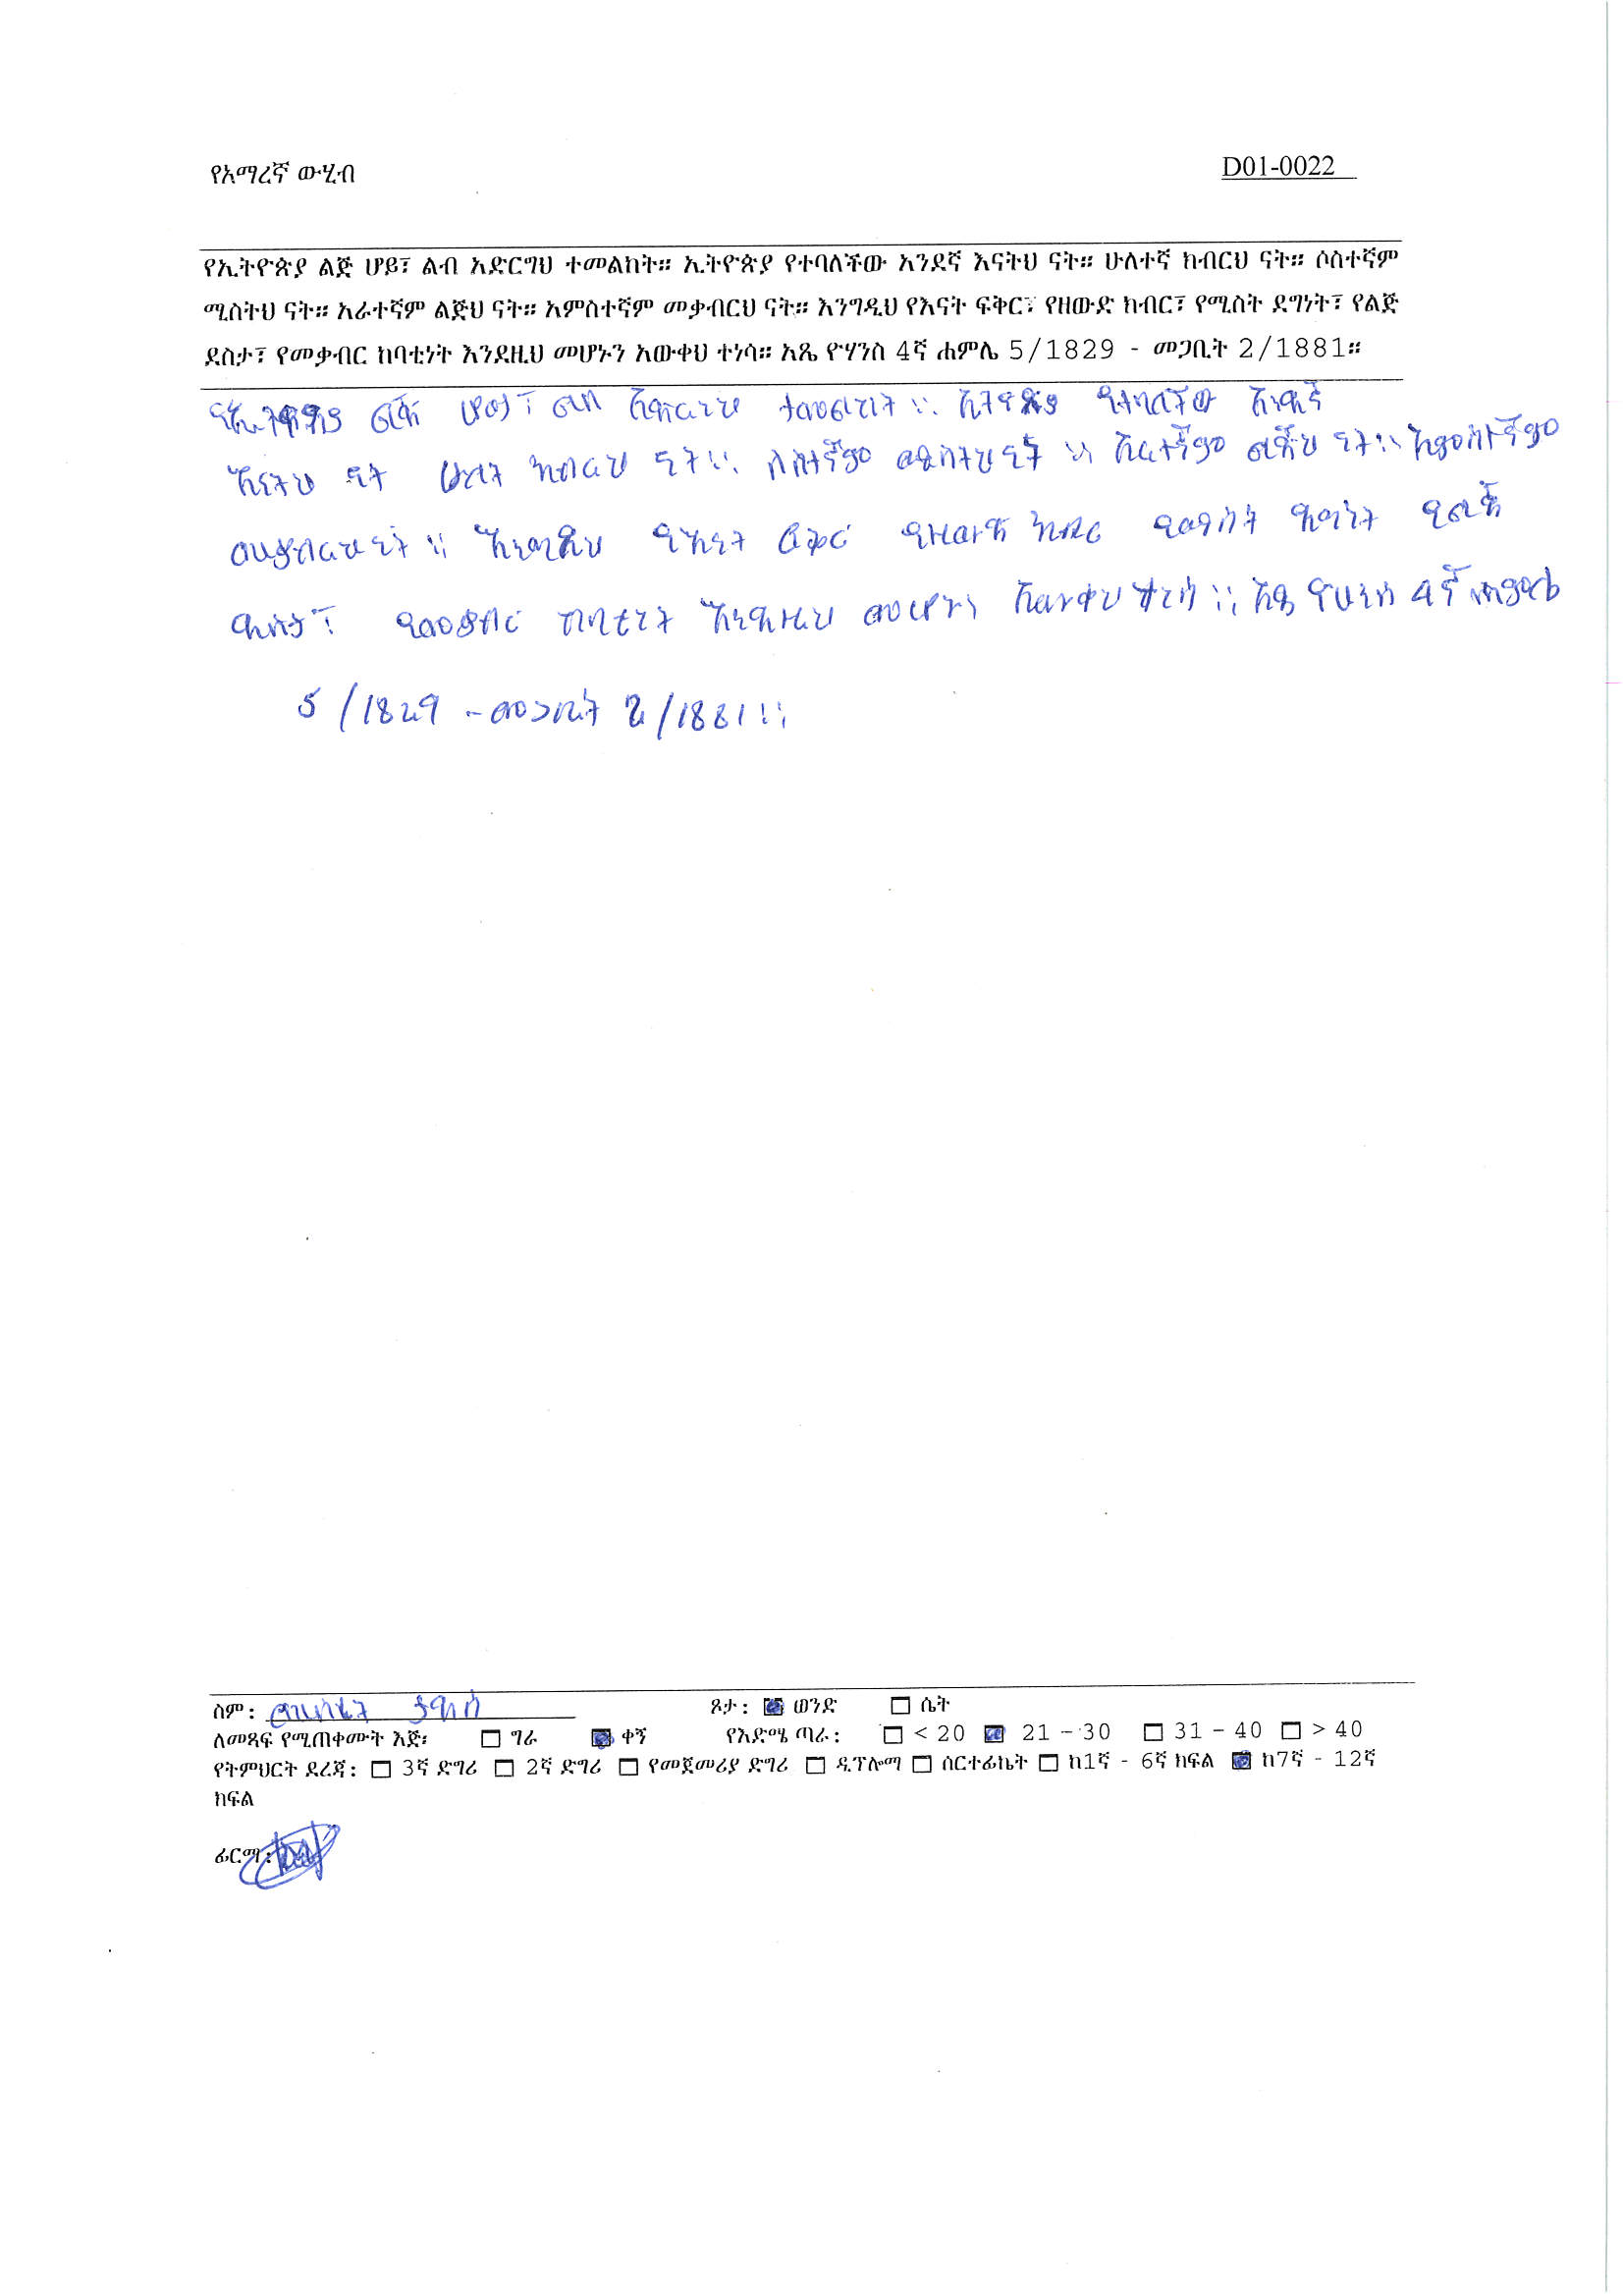 የአማረኛ ውሂብ
D01-0022
የኢትዮጵያ ልጅ ሆይ፣ ልብ አድርግህ ተመልከት። ኢትዮጵያ የተባለችው አንደኛ እናትህ ናት። ሁለተኛ ክብርህ ናት። ሶስተኛም
ሚስትህ ናት። አራተኛም ልጅህ ናት። አምስተኛም መቃብርህ ናት። እንግዲህ የእናት ፍቅር፣ የዘውድ ክብር፣ የሚስት ደግነት፣ የልጅ
ደስታ፣ የመቃብር ከባቲነት እንደዚህ መሆኑን አውቀህ ተነሳ። አጼ ዮሃንስ 4ኛ ሐምሌ 5/1829 - መጋቢት 2/1881።
የኢትዮጵያ ልጅ ሆይ፣ ልብ አድርግህ ተመልከት። ኢትዮጵያ የተባለችው አንደኛ
እናትህ ናት ሁለት ክብርህ ናት። ሶስተኛም ሚስትህ ናት። አራተኛም ልጅህ ናት። አምስተኛም
መቃብርህ ናት። እንግዲህ የእናት ፍቅር የዘውድ ክብር የሚስት ደግነት የልጅ
ደስታ፣ የመቃብር ከባቲነት እንደዚህ መሆኑን አውቀህ ተነሳ። አጼ ዮሃንስ 4ኛ ሐምሌ
5/1829 - መጋቢት 2/1881።
ስም:
ጾታ: ወንድ ሴት
ለመጻፍ የሚጠቀሙት እጅ፡ ግራ ቀኝ የእድሜ ጣራ: < 20 21 - 30 31 - 40 > 40
የትምህርት ደረጃ: 3ኛ ድግሪ 2ኛ ድግሪ የመጀመሪያ ድግሪ ዲፕሎማ ሰርተፊኬት ከ1ኛ - 6ኛ ክፍል ከ7ኛ - 12ኛ
ክፍል
ፊርማ: